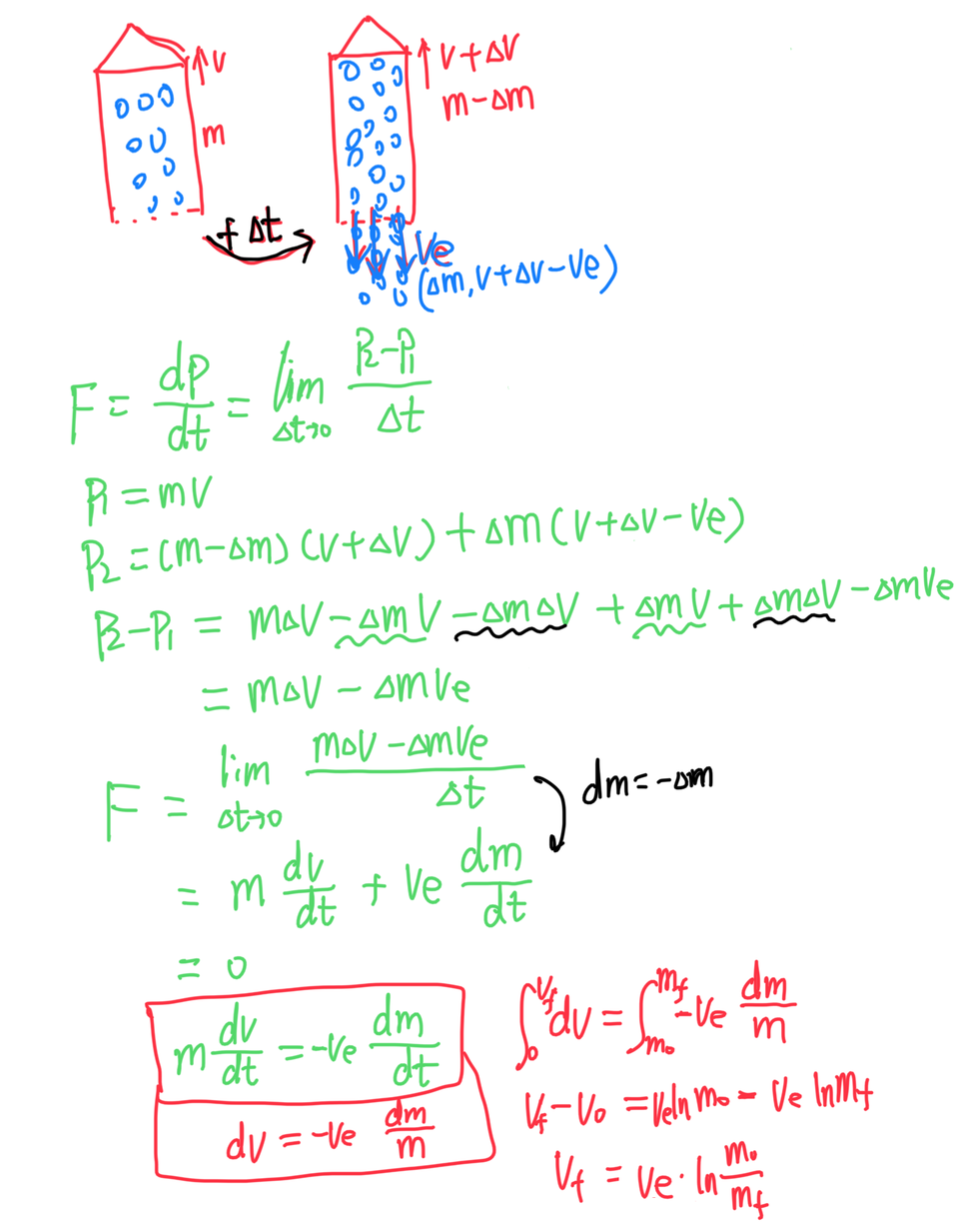 ↑v
m
↑v+Δv
m-Δm
+Δt
Ve
(Δm, v+Δv-Ve)
F = dP/dt = lim Δt→0 (P2-P1)/Δt
P1 = mv
P2 = (m-Δm)(v+Δv)+Δm(v+Δv-Ve)
P2-P1 = mΔv-Δmv-ΔmΔv+Δmv+ΔmΔv-ΔmVe
= mΔv-ΔmVe
F = lim Δt→0 (mΔv-ΔmVe)/Δt
dm=-Δm
= m dv/dt + Ve dm/dt
= 0
m dv/dt = -Ve dm/dt
dv = -Ve dm/m
∫0^Vf dv = ∫m0^mf -Ve dm/m
Vf-V0 = Veln m0 - Ve lnmf
Vf = Ve·ln m0/mf